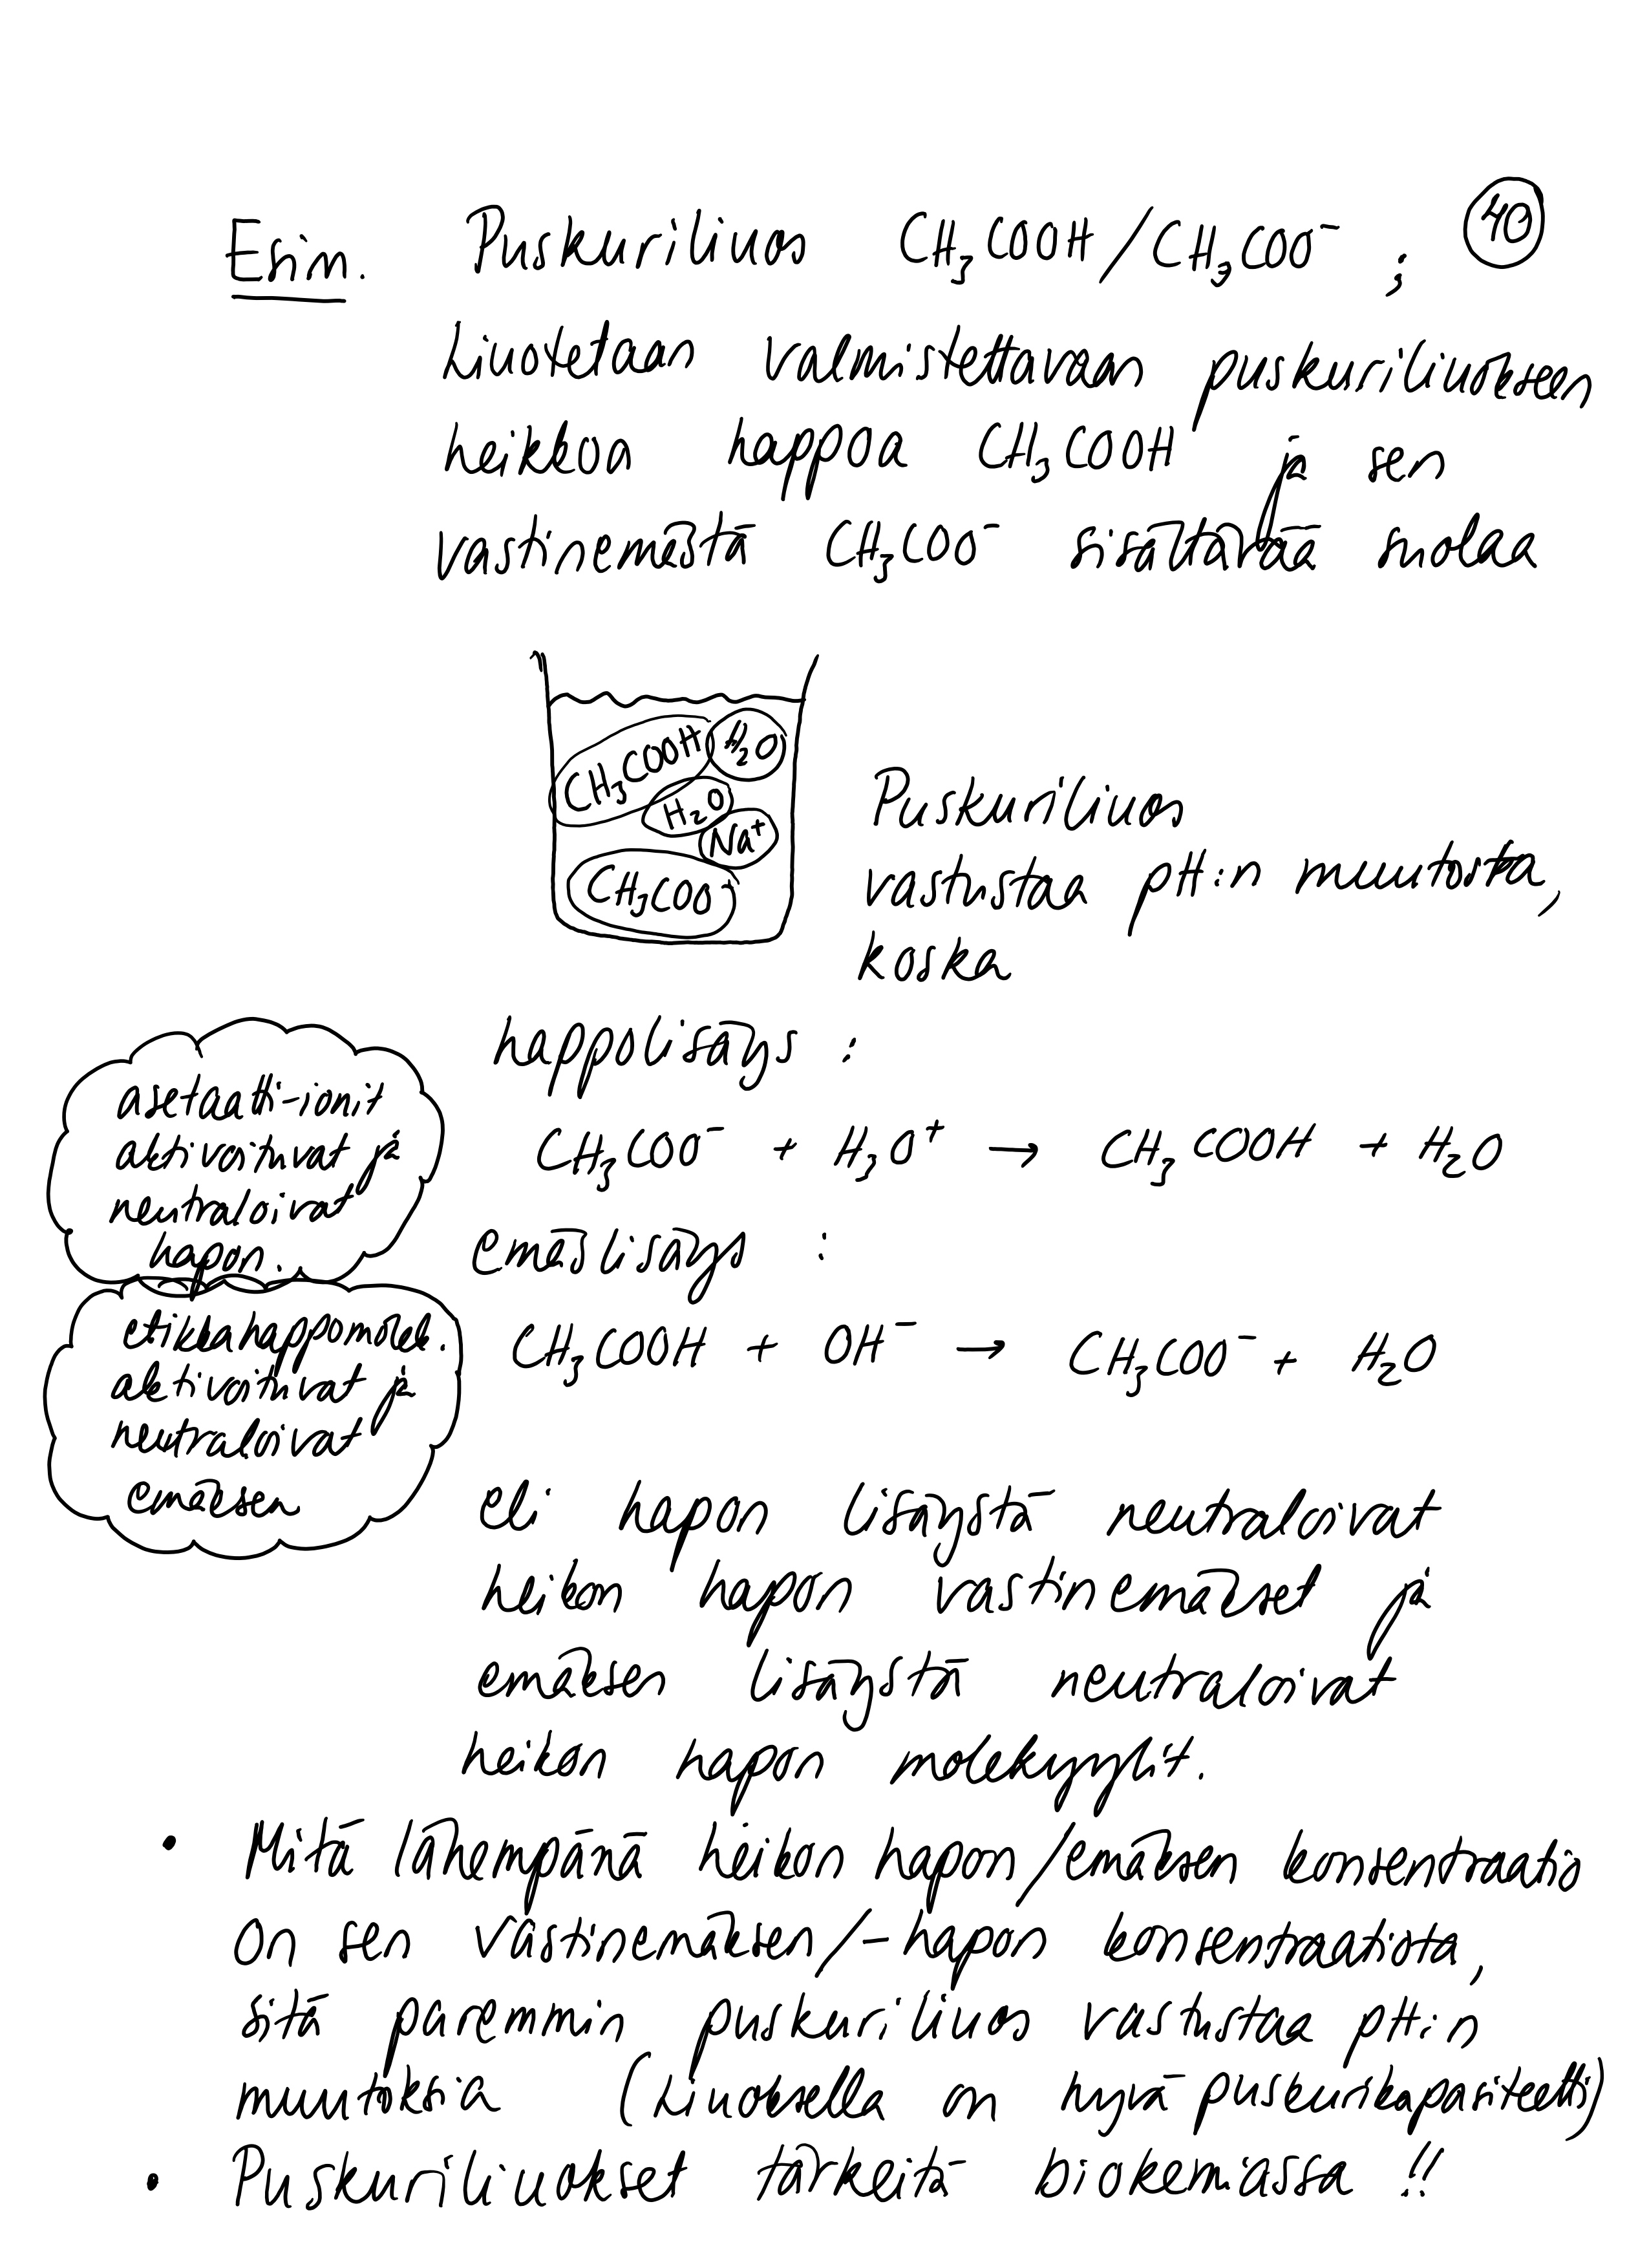 40
Esim. Puskuriliuos CH₃COOH/CH₃COO⁻ ;
Liuotetaan valmistettavaan puskuriliuokseen
heikkoa happoa CH₃COOH ja sen
vastinemästä CH₃COO⁻ sisältävää suolaa
CH₃COOH H₂O
H₂O
Na⁺
CH₃COO⁻
Puskuriliuos
vastustaa pH:n muutosta,
koska
happolisäys :
asetaatti-ionit
aktivoituvat ja
neutraloivat
hapon.
CH₃COO⁻ + H₃O⁺ → CH₃COOH + H₂O
emäslisäys :
etikkahappomolek.
aktivoituvat ja
neutraloivat
emäksen
CH₃COOH + OH⁻ → CH₃COO⁻ + H₂O
eli hapon lisäystä neutraloivat
heikon hapon vastinemäkset ja
emäksen lisäystä neutraloivat
heikon hapon molekyylit.
• Mitä lähempänä heikon hapon/emäksen konsentraatio
on sen vastinemäksen/-hapon konsentraatiota,
sitä paremmin puskuriliuos vastustaa pH:n
muutoksia (Liuoksella on hyvä puskurikapasiteetti)
• Puskuriliuokset tärkeitä biokemiassa !!